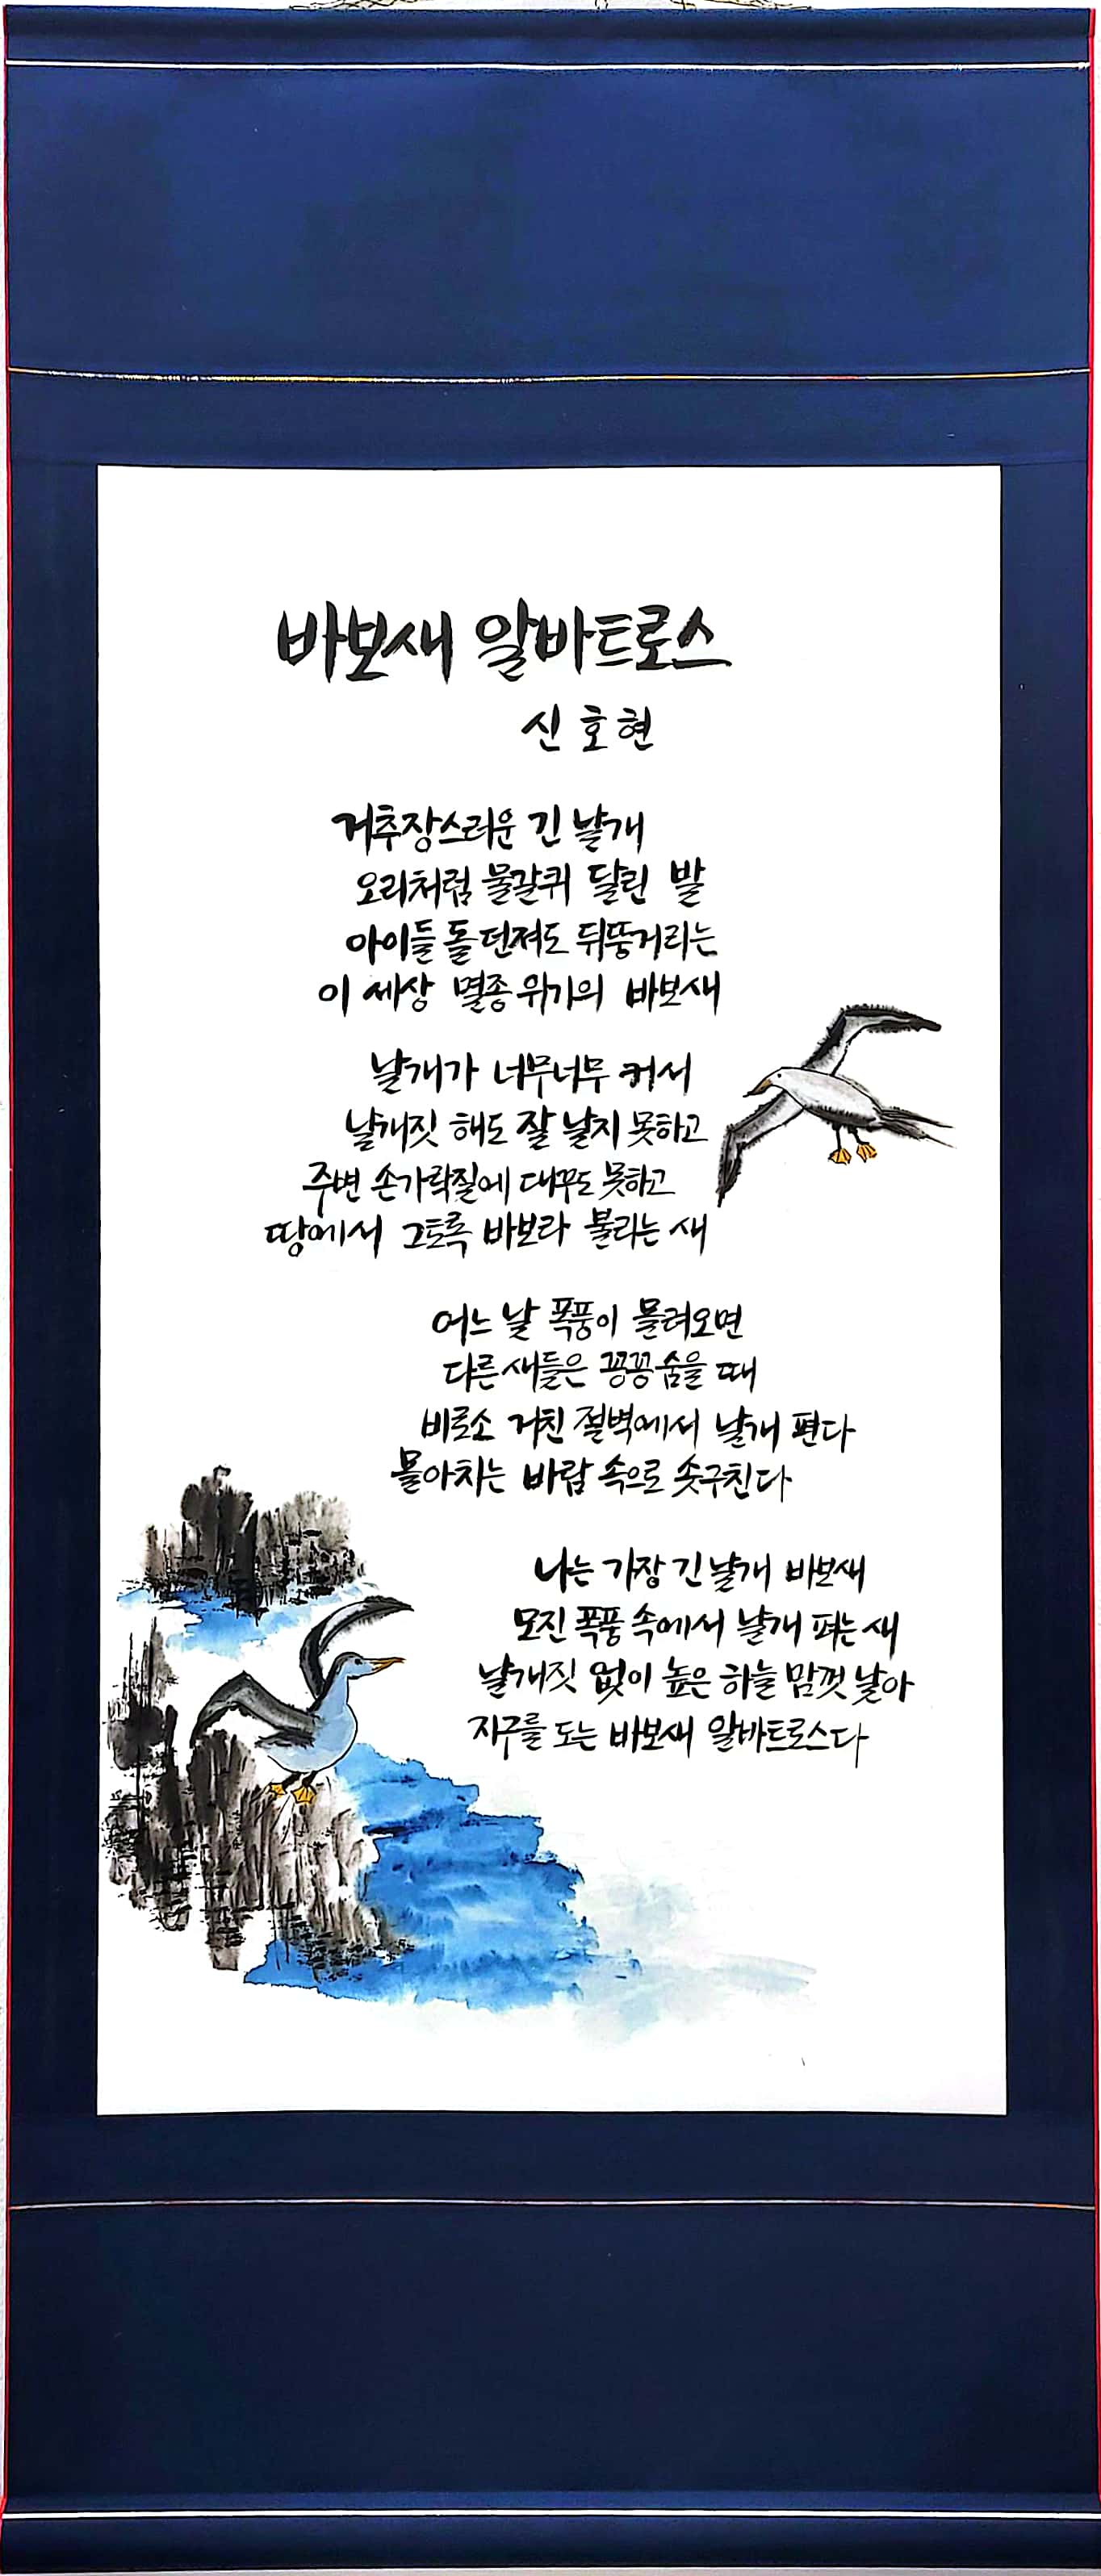 바보새 알바트로스
신호현
거추장스러운 긴 날개
오리처럼 물갈퀴 달린 발
아이들 돌 던져도 뒤뚱거리는
이 세상 멸종위기의 바보새
날개가 너무너무 커서
날개짓 해도 잘 날지 못하고
주변 손가락질에 대꾸도 못하고
땅에서 그토록 바보라 불리는 새
어느 날 폭풍이 몰려오면
다른 새들은 꽁꽁 숨을 때
비로소 거친 절벽에서 날개 편다
몰아치는 바람 속으로 솟구친다
나는 가장 긴 날개 바보새
모진 폭풍 속에서 날개 펴는 새
날개짓 없이 높은 하늘 맘껏 날아
지구를 도는 바보새 알바트로스다